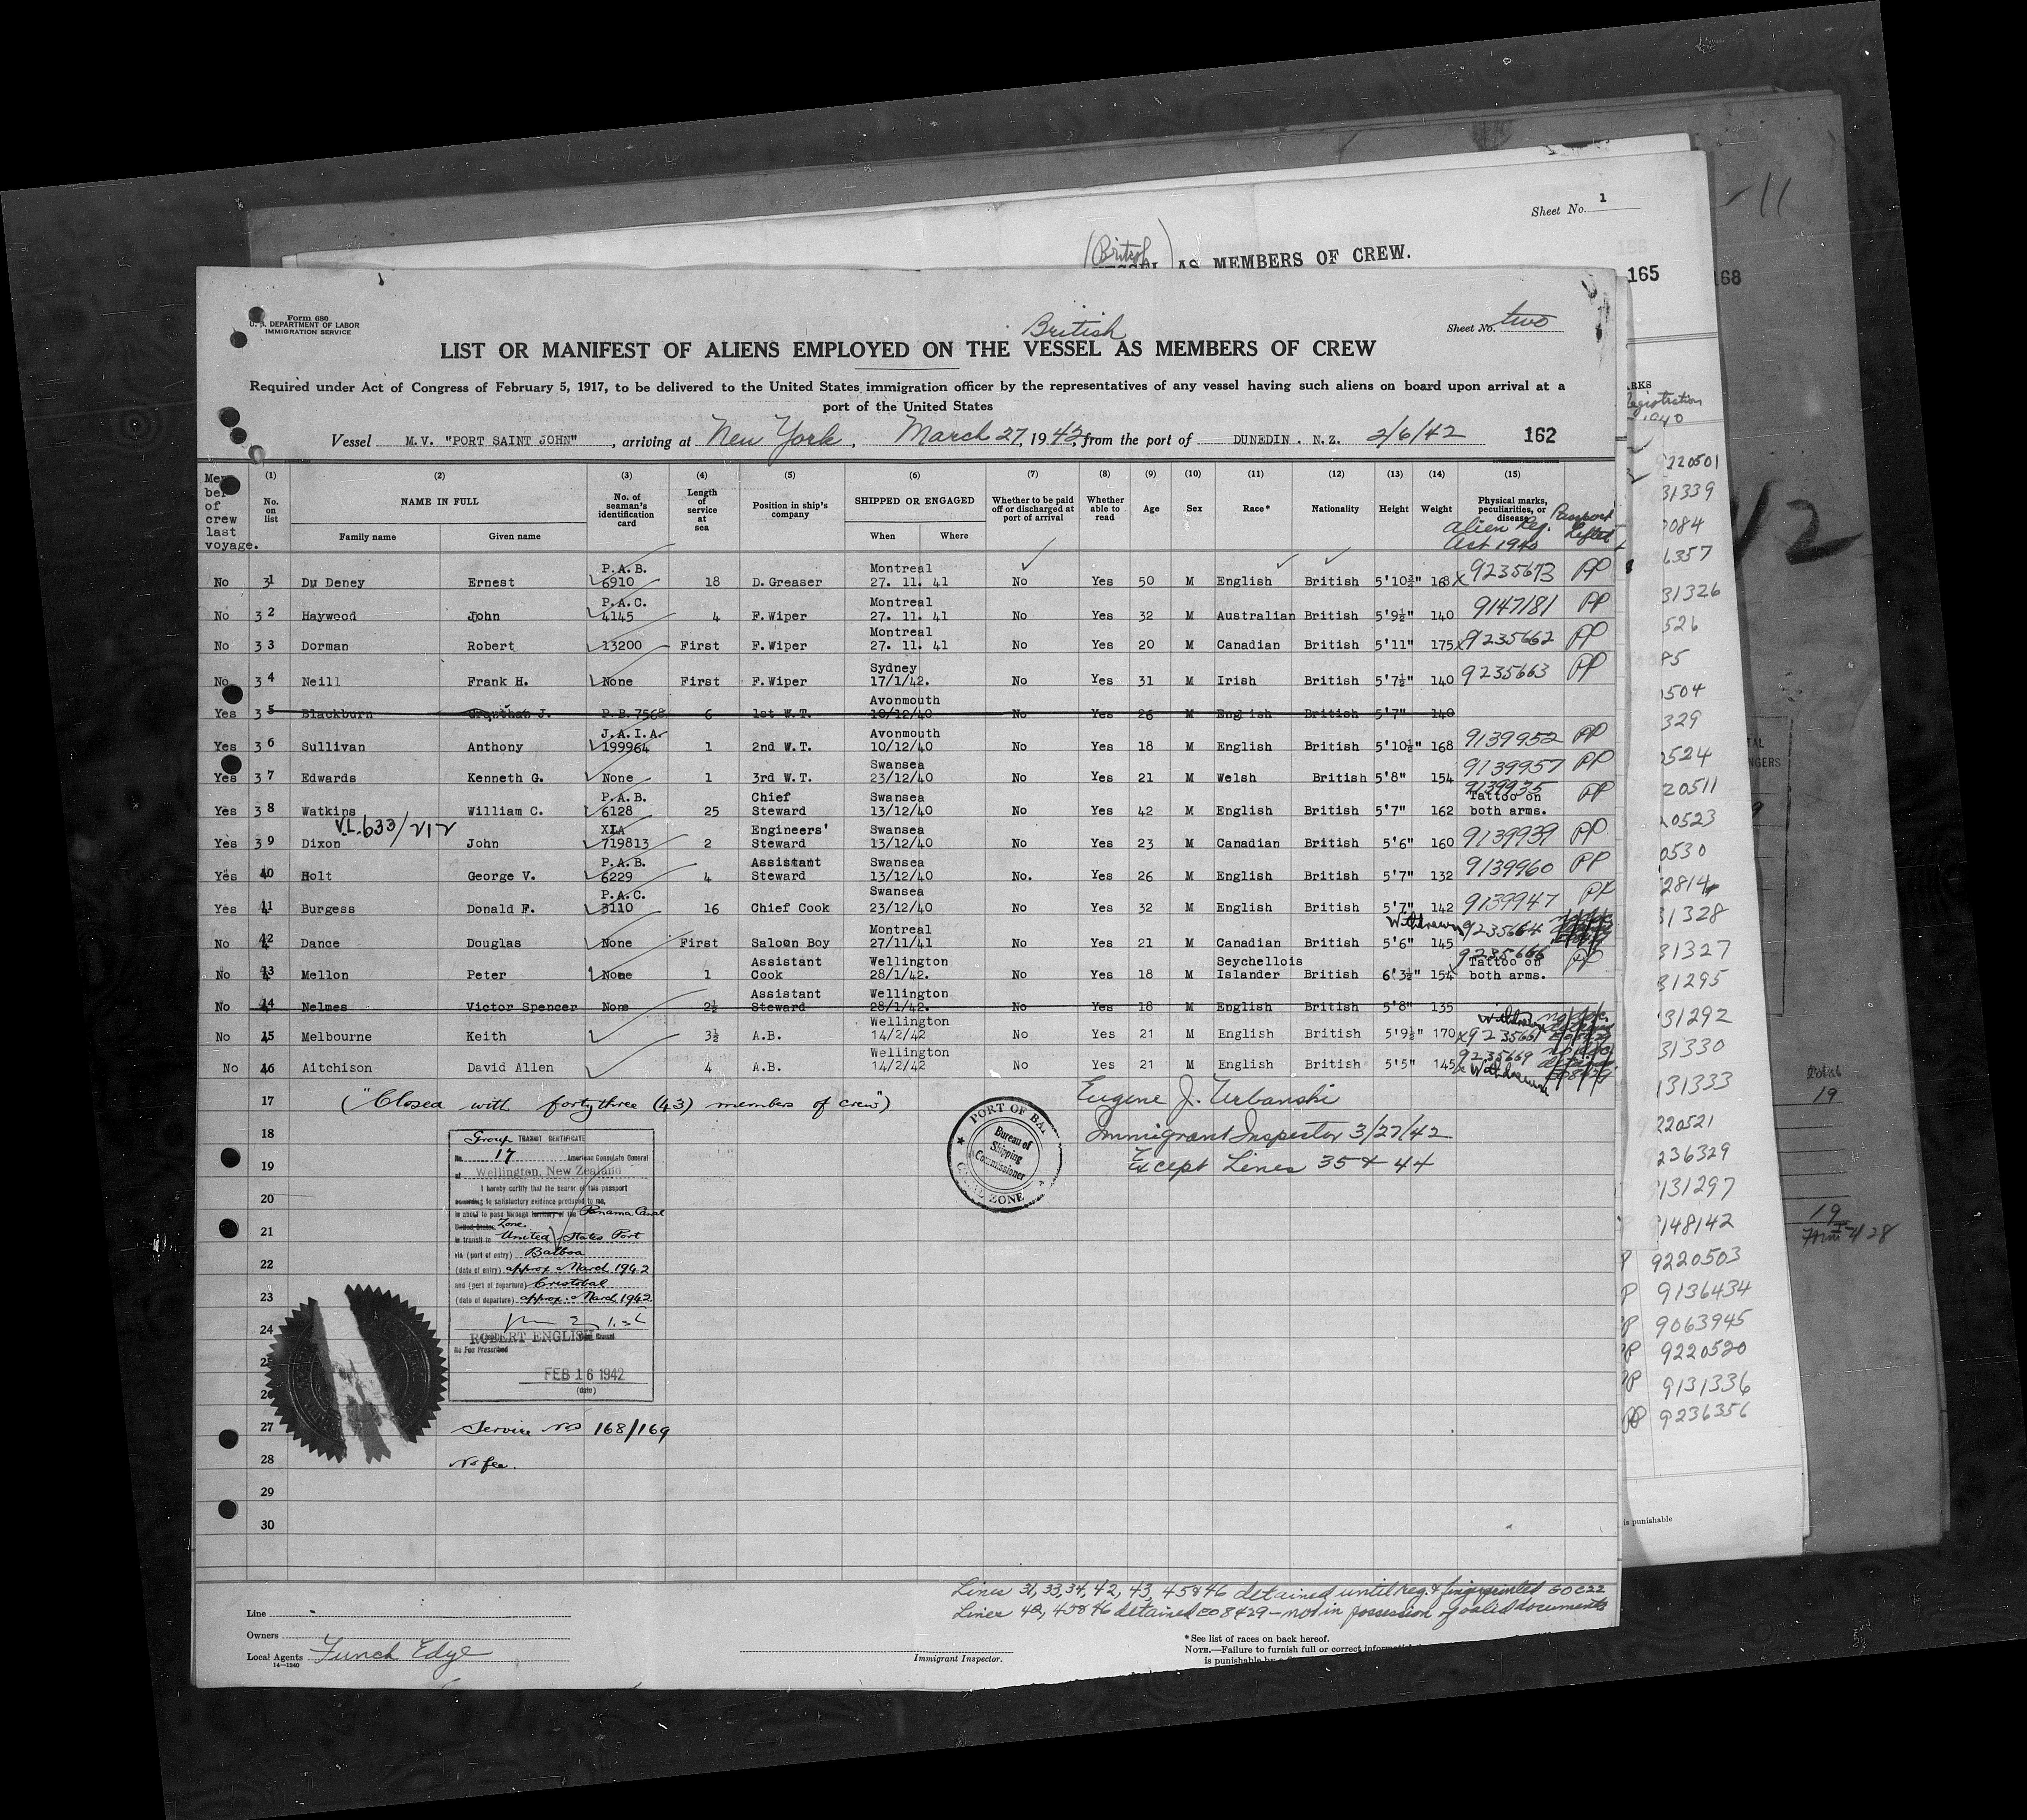 Sheet No. 1
(British)
AS MEMBERS OF CREW.
165
168
-11
Form 680
U. S. DEPARTMENT OF LABOR
IMMIGRATION SERVICE
British
Sheet No. two
LIST OR MANIFEST OF ALIENS EMPLOYED ON THE VESSEL AS MEMBERS OF CREW
Required under Act of Congress of February 5, 1917, to be delivered to the United States immigration officer by the representatives of any vessel having such aliens on board upon arrival at a
port of the United States
Vessel M.V. "PORT SAINT JOHN", arriving at New York, March 27, 1942, from the port of DUNEDIN. N.Z. 2/6/42 162
Member of crew last voyage. (1) No. on list (2) NAME IN FULL Family name Given name (3) No. of seaman's identification card (4) Length of service at sea (5) Position in ship's company (6) SHIPPED OR ENGAGED When Where (7) Whether to be paid off or discharged at port of arrival (8) Whether able to read (9) Age (10) Sex (11) Race* (12) Nationality (13) Height (14) Weight (15) Physical marks, peculiarities, or disease Alien Reg. Act 1940 Passport Lifted
No 31 Du Deney Ernest P.A.B. 6910 18 D. Greaser Montreal 27. 11. 41 No Yes 50 M English British 5'10¾" 168 x 9235673 PP
No 32 Haywood John P.A.C. 4145 4 F. Wiper Montreal 27. 11. 41 No Yes 32 M Australian British 5'9½" 140 9147181 PP
No 33 Dorman Robert 13200 First F. Wiper Montreal 27. 11. 41 No Yes 20 M Canadian British 5'11" 175 x 9235662 PP
No 34 Neill Frank H. None First F. Wiper Sydney 17/1/42. No Yes 31 M Irish British 5'7½" 140 9235663 PP
Yes 35 Blackburn J. P.B.7568 6 1st W.T. Avonmouth 10/12/40 No Yes 26 M English British 5'7" 140
Yes 36 Sullivan Anthony J.A.I.A. 199964 1 2nd W.T. Avonmouth 10/12/40 No Yes 18 M English British 5'10½" 168 9139952 PP
Yes 37 Edwards Kenneth G. None 1 3rd W.T. Swansea 23/12/40 No Yes 21 M Welsh British 5'8" 154 9139957 PP
Yes 38 Watkins William C. P.A.B. 6128 25 Chief Steward Swansea 13/12/40 No Yes 42 M English British 5'7" 162 9139935 Tattoo on both arms. PP
V.L. 633/212
Yes 39 Dixon John XLA 719813 2 Engineers' Steward Swansea 13/12/40 No Yes 23 M Canadian British 5'6" 160 9139939 PP
Yes 40 Holt George V. P.A.B. 6229 4 Assistant Steward Swansea 13/12/40 No. Yes 26 M English British 5'7" 132 9139960 PP
Yes 41 Burgess Donald F. P.A.C. 3110 16 Chief Cook Swansea 23/12/40 No Yes 32 M English British 5'7" 142 9139947 PP
No 42 Dance Douglas None First Saloon Boy Montreal 27/11/41 No Yes 21 M Canadian British 5'6" 145 Withdrawn 9235664
No 43 Mellon Peter None 1 Assistant Cook Wellington 28/1/42. No Yes 18 M Seychellois Islander British 6'3½" 154 9235666 Tattoo on both arms. PP
No 44 Nelmes Victor Spencer None 2½ Assistant Steward Wellington 28/1/42. No Yes 18 M English British 5'8" 135
No 45 Melbourne Keith 3½ A.B. Wellington 14/2/42 No Yes 21 M English British 5'9½" 170 x Withdrawn
No 46 Aitchison David Allen 4 A.B. Wellington 14/2/42 No Yes 21 M English British 5'5" 145 9235669 x Withdrawn
17 ("Closed with forty three (43) members of crew") Eugene J. Urbanski
18 Immigrant Inspector 3/27/42
19 Except Lines 35 & 44
PORT OF BAL
Bureau of Shipping Commissioner
ZONE
Group TRANSIT CERTIFICATE
No. 17 American Consulate General
at Wellington, New Zealand
I hereby certify that the bearer of this passport
according to satisfactory evidence produced to me,
is about to pass through territory of the Panama Canal
United States Zone.
in transit to United States Port
via (port of entry) Balboa
(date of entry) approx March 1942
and (port of departure) Cristobal
(date of departure) approx. March 1942
ROBERT ENGLISH
No Fee Prescribed
FEB 16 1942
(date)
20
21
22
23
24
25
26
27 Service Nos 168/169
28 No fee.
29
30
Lines 31, 33, 34, 42, 43, 45 & 46 detained until reg. & fingerprinted GO C22
Lines 42, 45 & 46 detained EO 8429 - not in possession of valid documents
Line
Owners
Local Agents Funch Edye
14-1240
Immigrant Inspector.
* See list of races on back hereof.
NOTE.—Failure to furnish full or correct
is punishable
ARKS
Registration
1940
220501
31339
7084
6357
31326
526
85
504
329
2524
20511
20523
0530
2814
31328
31327
31295
31292
31330
131333
220521
236329
131297
9148142
P 9220503
P 9136434
P 9063945
P 9220520
P 9131336
PP 9236356
is punishable
42
TAL
NGERS
Total
19
19
Form I 428